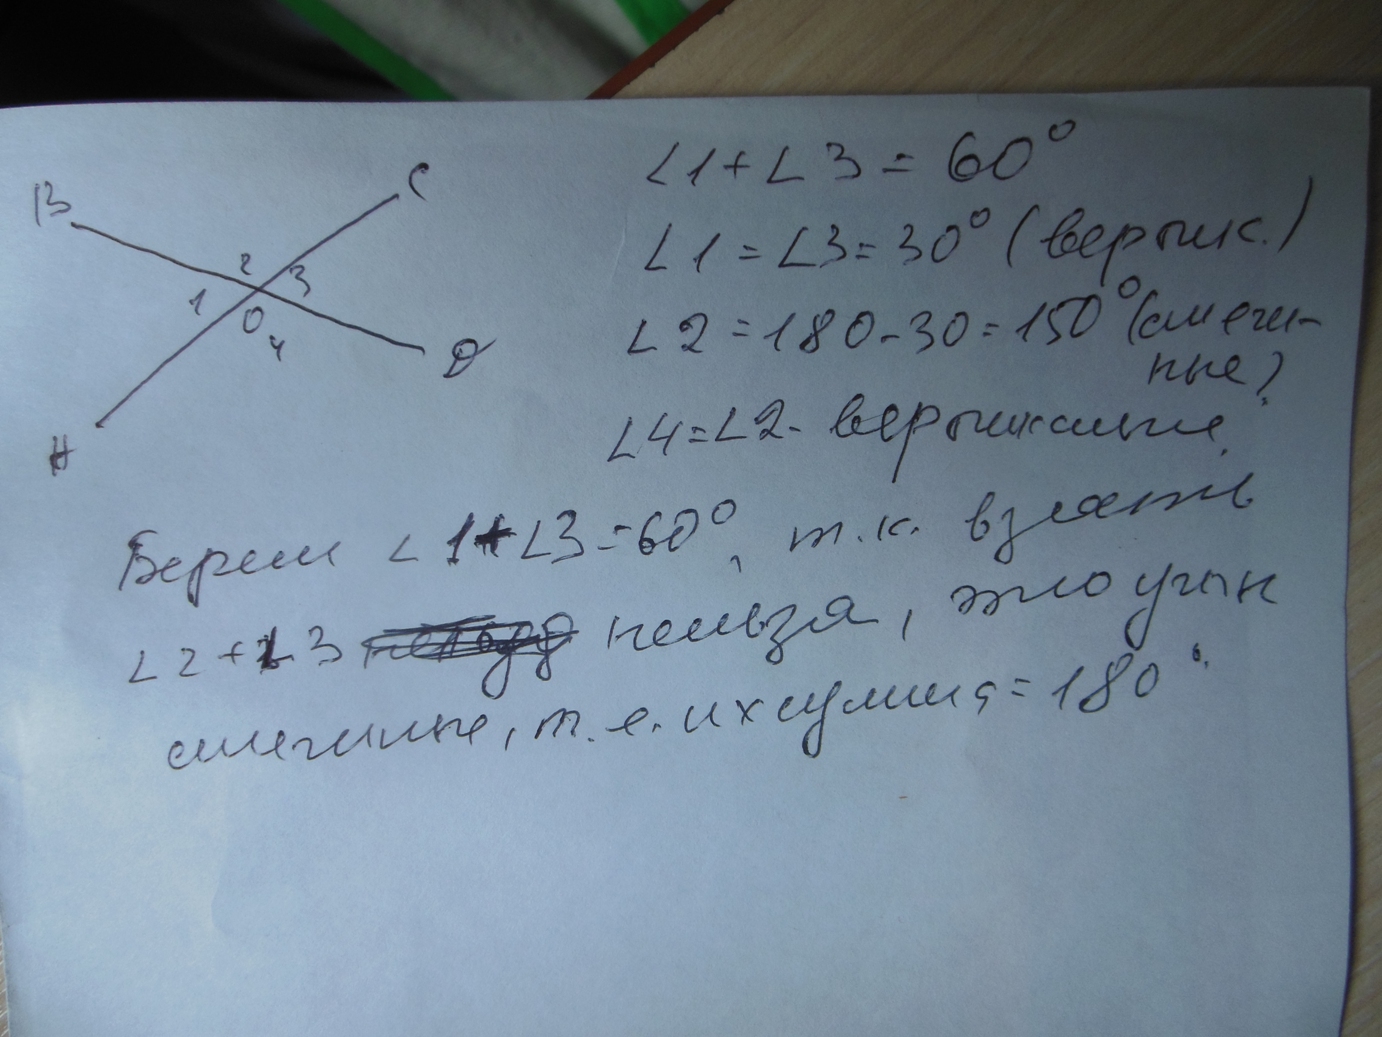 B
C
2
3
1
O
4
D
H
∠1+∠3=60°
∠1=∠3=30° (вертик.)
∠2=180-30=150° (смеж-
ные)
∠4=∠2- вертикальные.
Берем ∠1+∠3=60°, т.к. взять
∠2+∠3 нельзя, это углы
смежные, т.е. их сумма=180°.